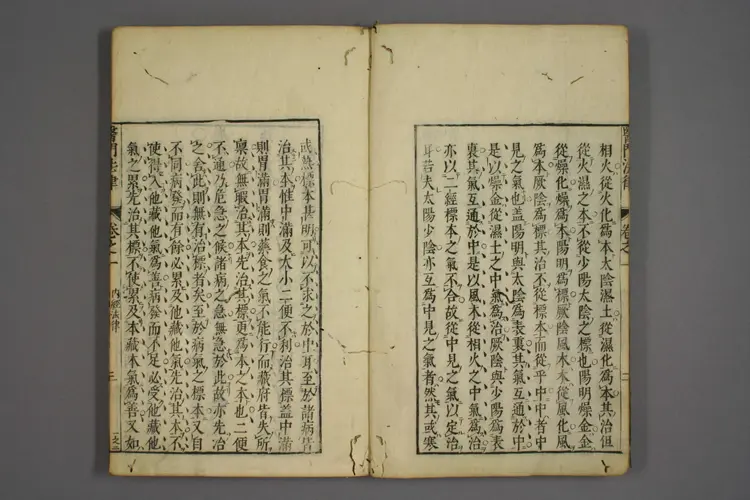 相火從火化爲本太陰濕土從濕化爲本其治但
從火濕之本不從少陽太陰之標也陽明燥金金
從燥化燥爲本陽明爲標厥陰風木木從風化風
爲本厥陰爲標其治不從標本而從乎中中者中
見之氣也盖陽明與太陰爲表裏其氣互通於中
是以燥金從濕土之中氣爲治厥陰與少陽爲表
裏其氣互通於中是以風木從相火之中氣爲治
亦以二經標本之氣不合故從中見之氣以定治
耳若夫太陽少陰亦互爲中見之氣者然其或寒
或熱標本甚明可以不求之於中耳至於諸病皆
治其本惟中滿及大小二便不利治其標盖中滿
則胃滿胃滿則藥食之氣不能行而藏府皆失所
稟故無暇治其本先治其標更爲本之本也二便
不通乃危急之候諸病之急無急於此故亦先治
之舍此則無有治標者矣至於病氣之標本又自
不同病發而有餘必累及他藏他氣先治其本不
使得入他藏他氣爲善病發而不足必受他藏他
氣之累先治其標不使累及本藏本氣爲善又如
醫門法律
卷之一
内經法律
三
醫門法律
卷之一
二